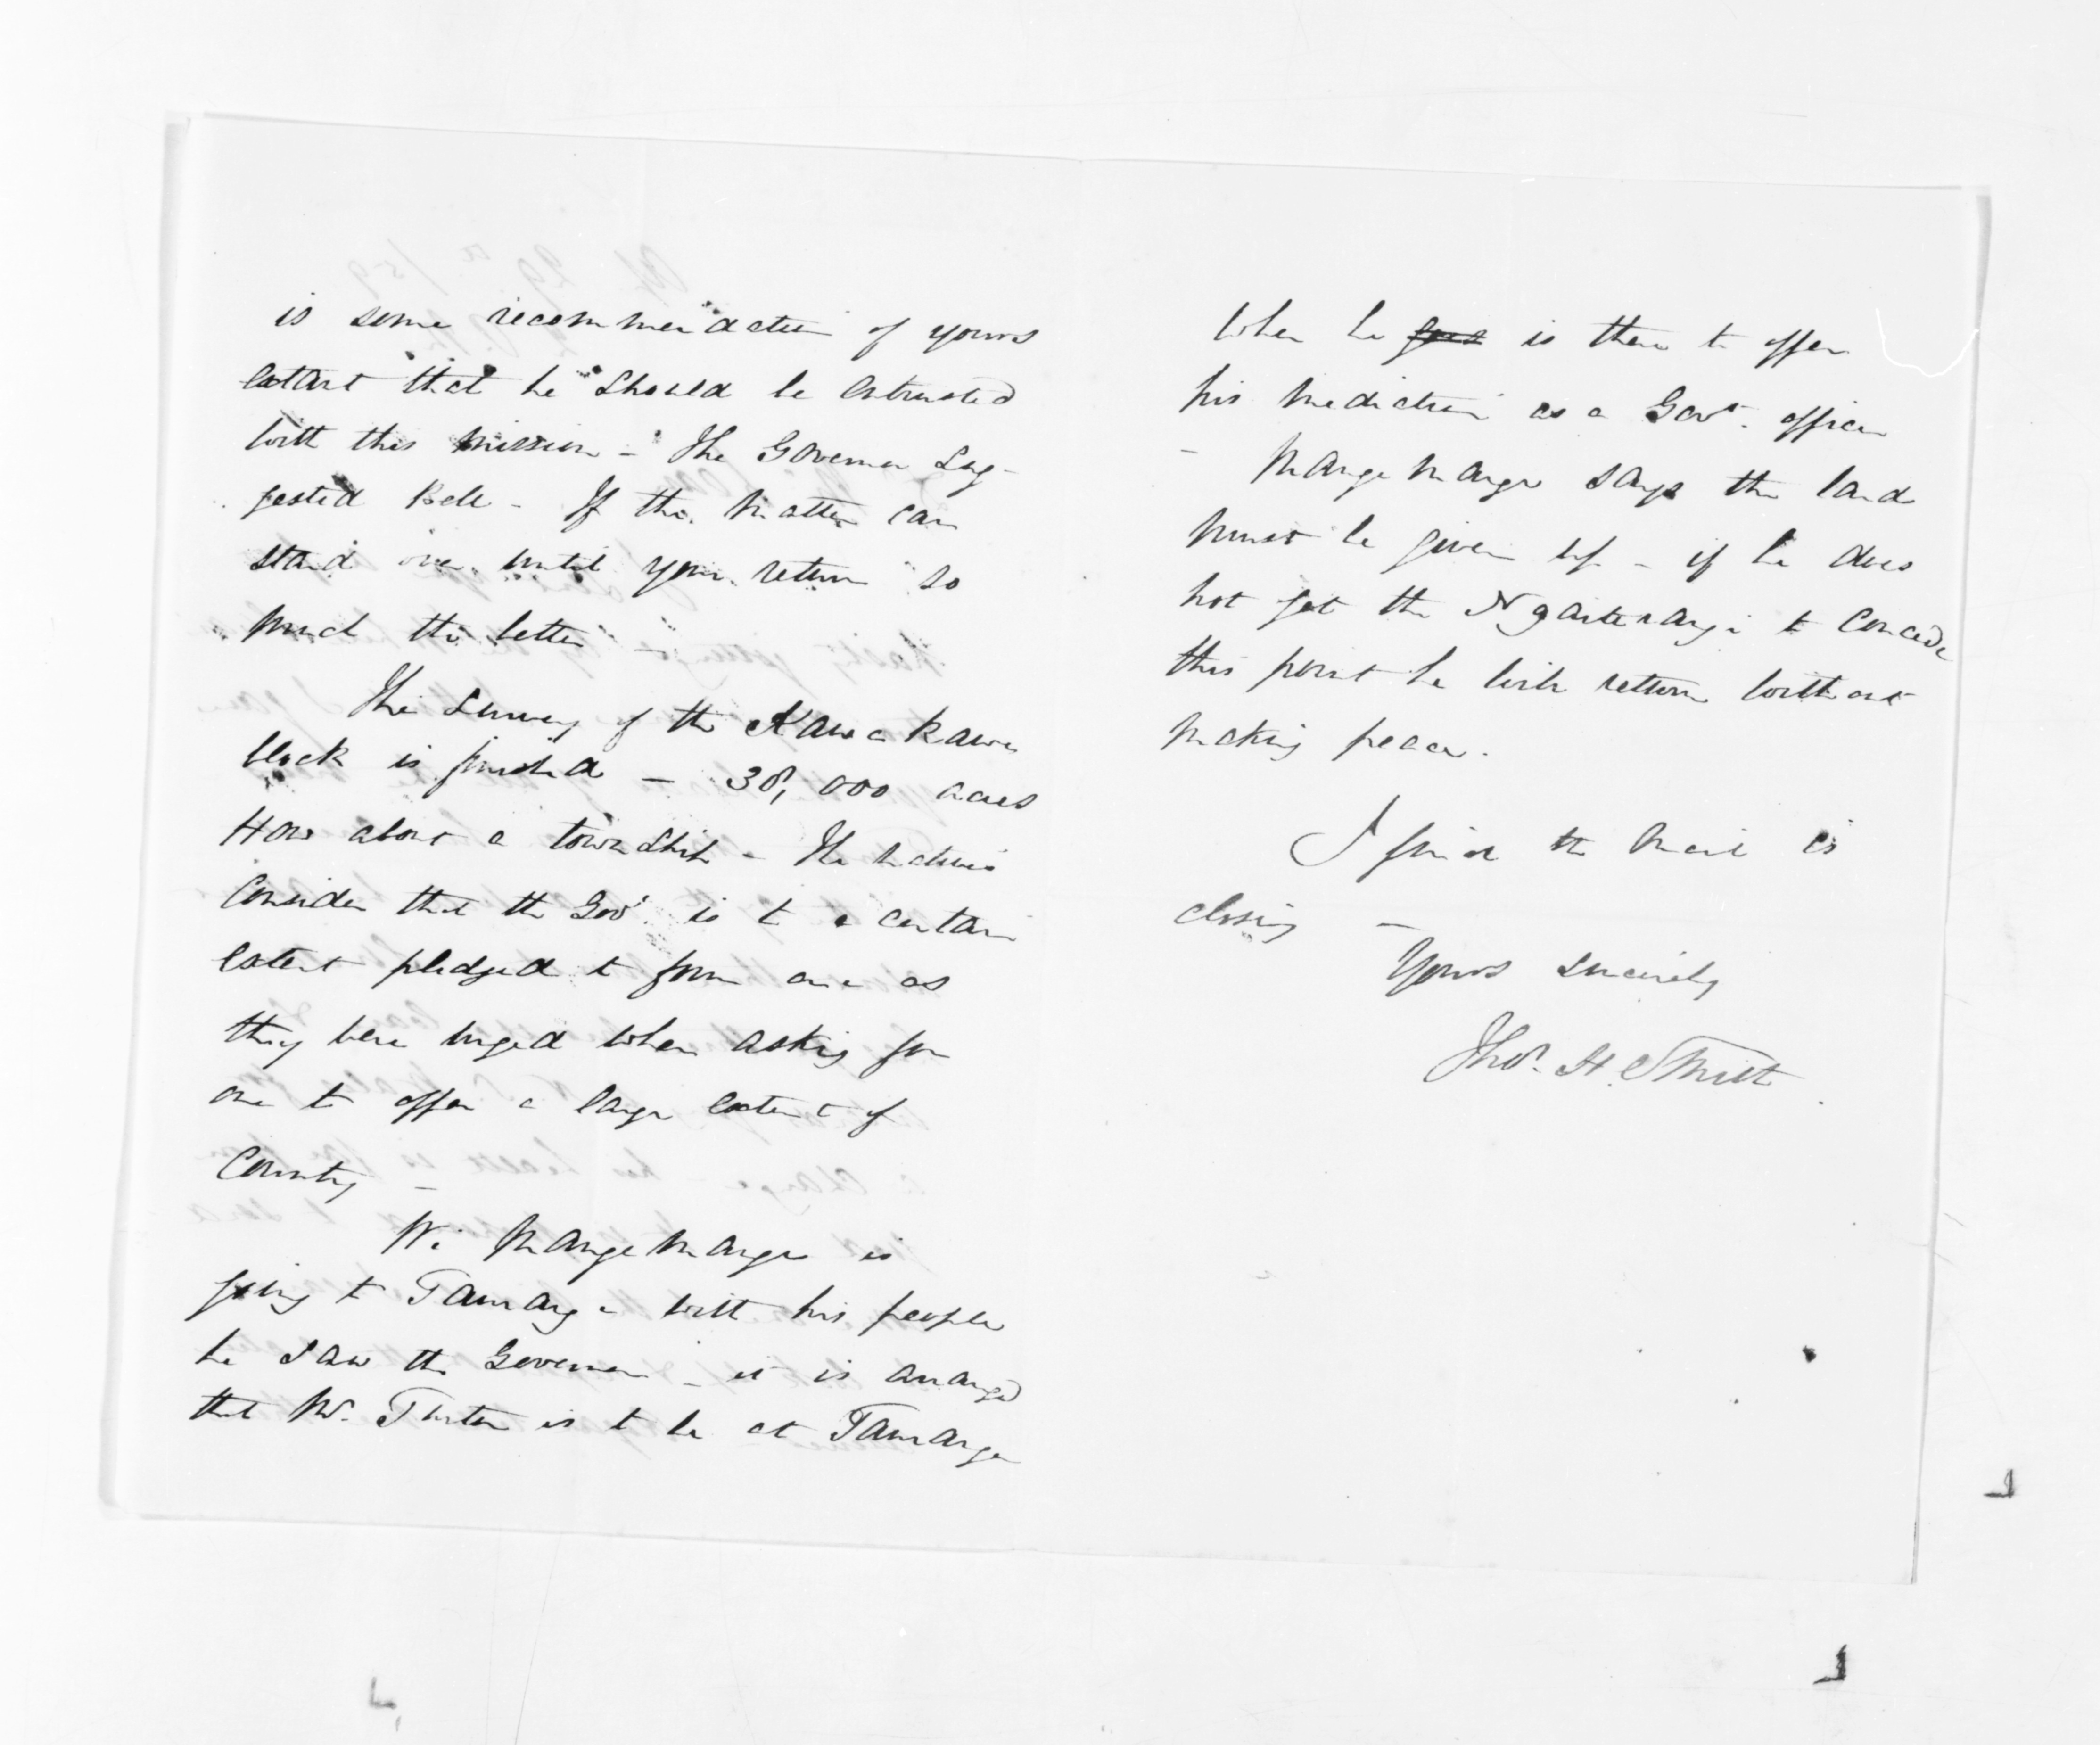 is some recommendation of yours
extant that he should be entrusted
with this mission – The Governor sug-
gested Bell – If the matter can
stand over until your return so
much the better –
The Survey of the Kawakawa
block is finished – 38,000 acres
How about a township – The natives
consider that the Govt is to a certain
extent pledged to form one as
they were urged when asking for
one to offer a large extent of
Country –
Wi Mangemange is
going to Tauranga with his people
he saw the Governor – it is arranged
that Mr. Turton is to be at Tauranga
when he goes is there to offer
his mediation as a Govt. officer
– Mangemange says the land
must be given up – if he does
not get the Ngaiterangi to concede
this point he will return without
making peace.
I find the mail is
closing –
Yours sincerely
Thos. H. Smith